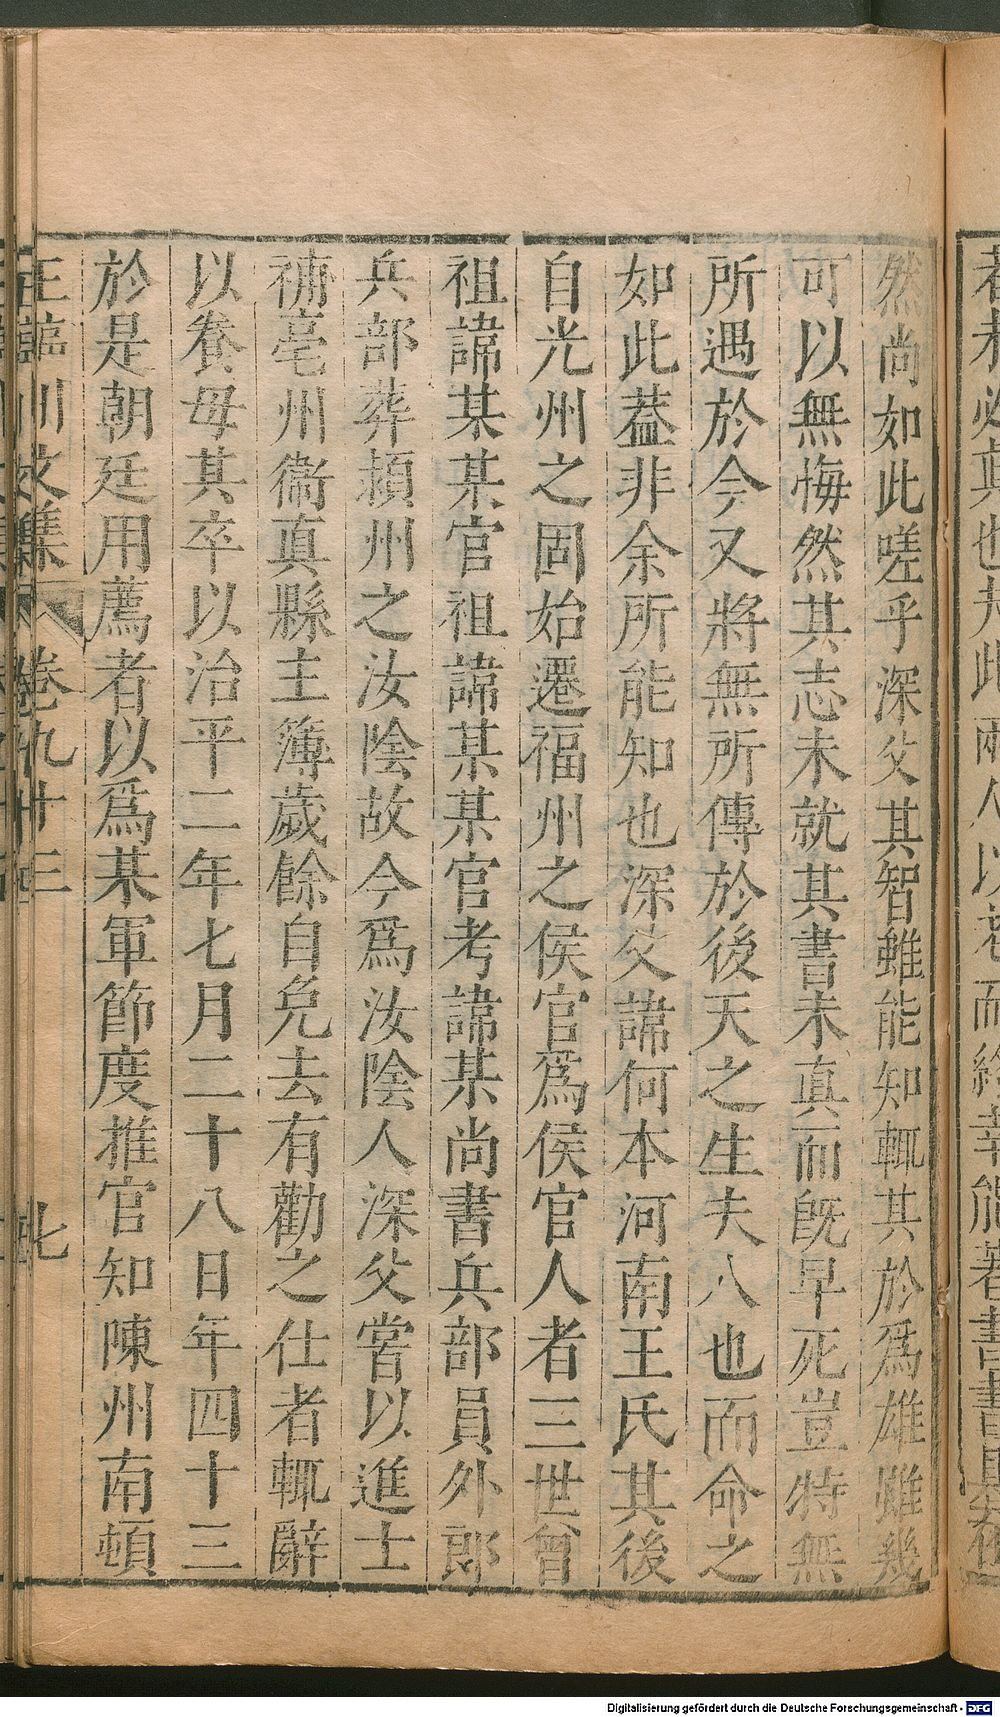 然尚如此嗟乎深父其智雖能知軻其於爲雄雖幾
可以無悔然其志未就其書未真而旣早死豈特無
所遇於今又將無所傳於後天之生夫人也而命之
如此葢非余所能知也深父諱何本河南王氏其後
自光州之固始遷福州之侯官爲侯官人者三世曾
祖諱某某官祖諱某某官考諱某尚書兵部員外郎
兵部葬潁州之汝陰故今爲汝陰人深父嘗以進士
補亳州衞真縣主簿歲餘自免去有勸之仕者輒辭
以養母其卒以治平二年七月二十八日年四十三
於是朝廷用薦者以爲某軍節度推官知陳州南頓
王臨川文集 卷九十三 七
Digitalisierung gefördert durch die Deutsche Forschungsgemeinschaft - DFG